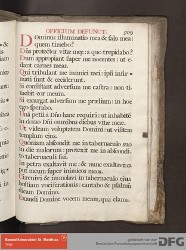 OFFICIUM DEFUNCT.
Dominus illuminatio mea & salus mea:
quem timebo?
Dñs protector vitæ meæ: a quo trepidabo?
Dum appropiant super me nocentes: ut e-
dant carnes meas.
Qui tribulant me inimici mei: ipsi infir-
mati sunt & ceciderunt.
Si consistant adversum me castra: non ti-
mebit cor meum.
Si exurgat adversum me prælium: in hoc
ego sperabo.
Unã petii a Dño hanc requirã: ut inhabitẽ
in domo Dñi omnibus diebus vitæ meæ.
Ut videam voluptatem Domini: ut visitem
templum ejus.
Quoniam abscondit me in tabernaculo suo:
in die malorum: protexit me in abscondito
tabernaculi sui.
In petra exaltavit me: & nunc exaltavit ca-
put meum super inimicos meos.
Circuivi & immolavi in tabernaculo ejus
hostiam vociferationis: cantabo & psalmũ
dicam Domino.
Exaudi Domine vocem meam, qua clama-
DFG